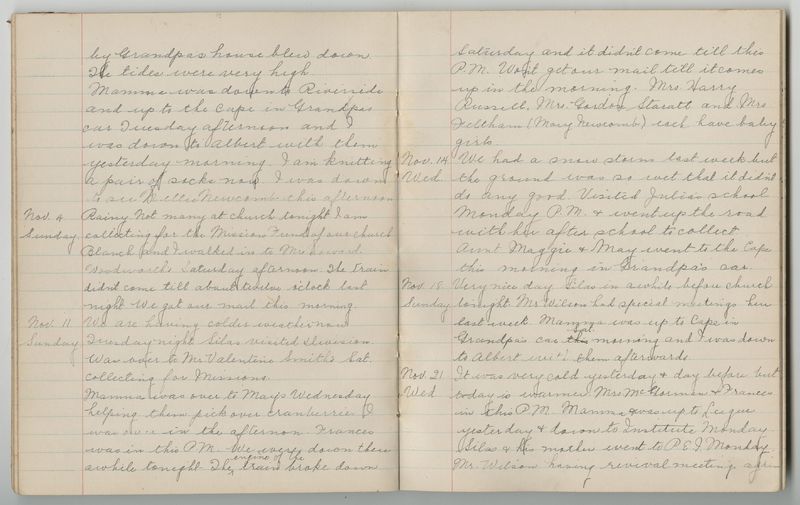 by Grandpas house blew down.
The tides were very high.
Mamma was down to Riverside
and up to the Cape in Grandpas
car Tuesday afternoon and I
was down to Albert with them
yesterday morning. I am knitting
a pair of socks now I was down
to see Nellie Newcomb this afternoon
Nov. 4 Rainy Not many at church tonight I am
Sunday collecting for the Mission Fund of our church
Blanch and I walked in to Mrs
Woodworth's Saturday afternoon. The train
didn't come till about twelve o'clock last
night We got our mail this morning.
Nov. 11 We are having colder weather now
Sunday Tuesday night Silas visited division.
Was over to Mr. Valentine Smith's Sat.
collecting for Missions.
Mamma was over to Mays Wednesday
helping them pick over cranberries I
was over in the afternoon. Frances
was in this P.M. We were down there
awhile tonight. The engine of the train broke down
Saturday and it didn't come till this
P.M. Wont get our mail till it comes
up in the morning. Mrs. Harry
Russell, Mrs. Gordon and Mrs
Feltham (Mary Newcomb) each have baby
girls.
Nov. 14 We had a snow storm last week but
Wed the ground was so wet that it didn't
do any good. Visited Julia's school
Monday P.M. & went up the road
with her after school to collect
Aunt Maggie & May went to the Cape
this morning in Grandpa's car.
Nov. 18 Very nice day Silas in awhile before church
Sunday tonight. Mr. Wilson had special meetings here
last week. Mamma was up to Cape in
Grandpa's car Sat. morning and I was down
to Albert with them afterwards.
Nov. 21 It was very cold yesterday & day before but
Wed today is warmer. Mrs McGorman & Frances
in this P.M. Mamma was up to League
yesterday & down to Institute Monday
Silas & his mother went to P.E.I. Monday.
Mr. Wilson having revival meeting again